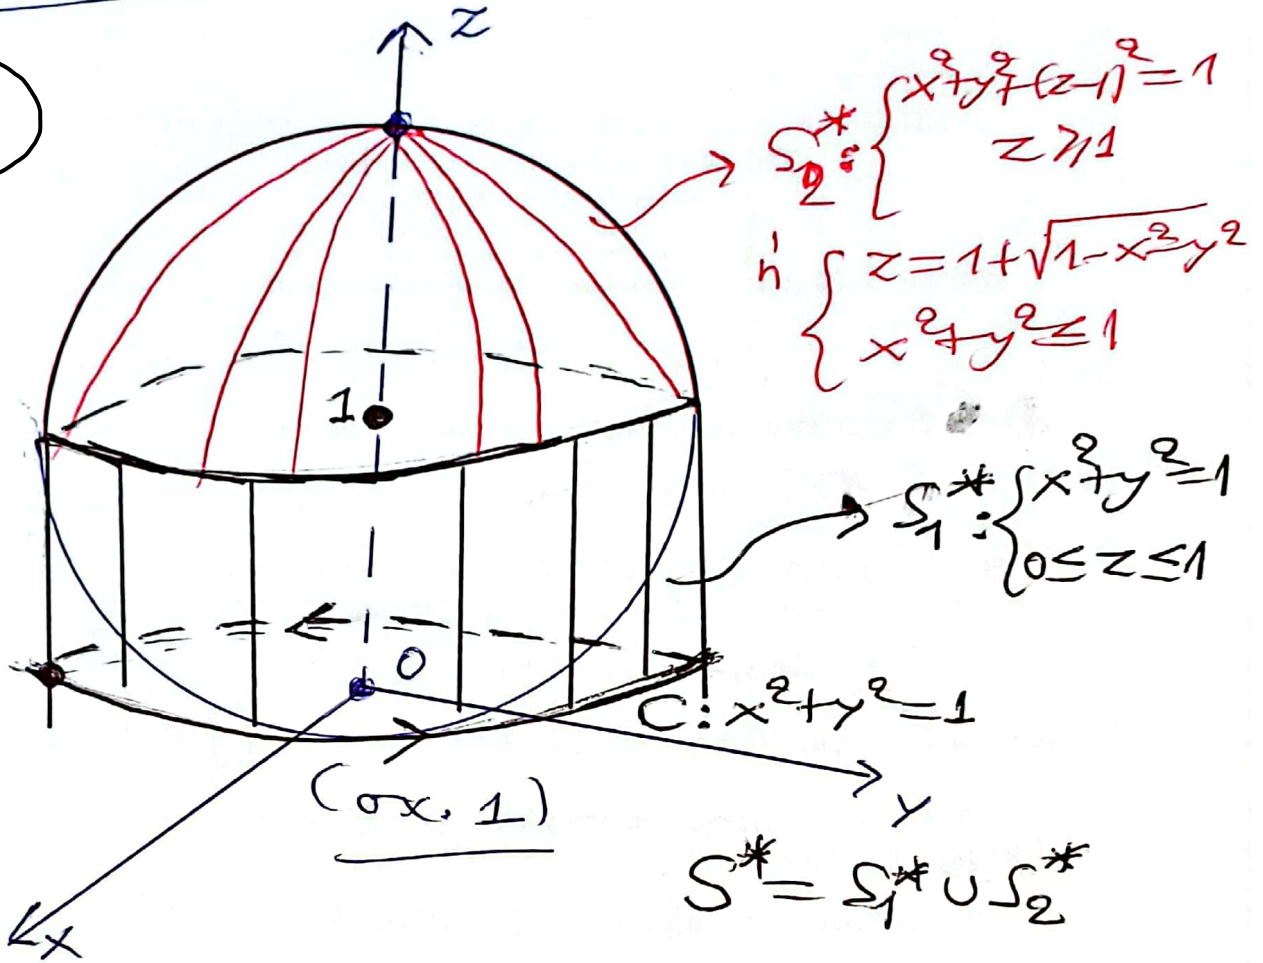 z
S₂*: { x²+y²+(z-1)²=1
z⩾1
ή { z=1+√1-x²-y²
x²+y²≤1
1
S₁*: { x²+y²=1
0≤z≤1
O
C: x²+y²=1
(σχ. 1)
y
S* = S₁* ∪ S₂*
x